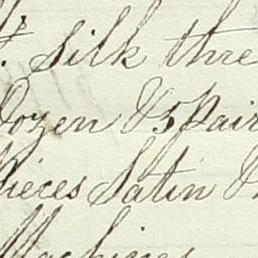 Silk thre
Dozen & 5 Pair
Pieces Satin &
Machines